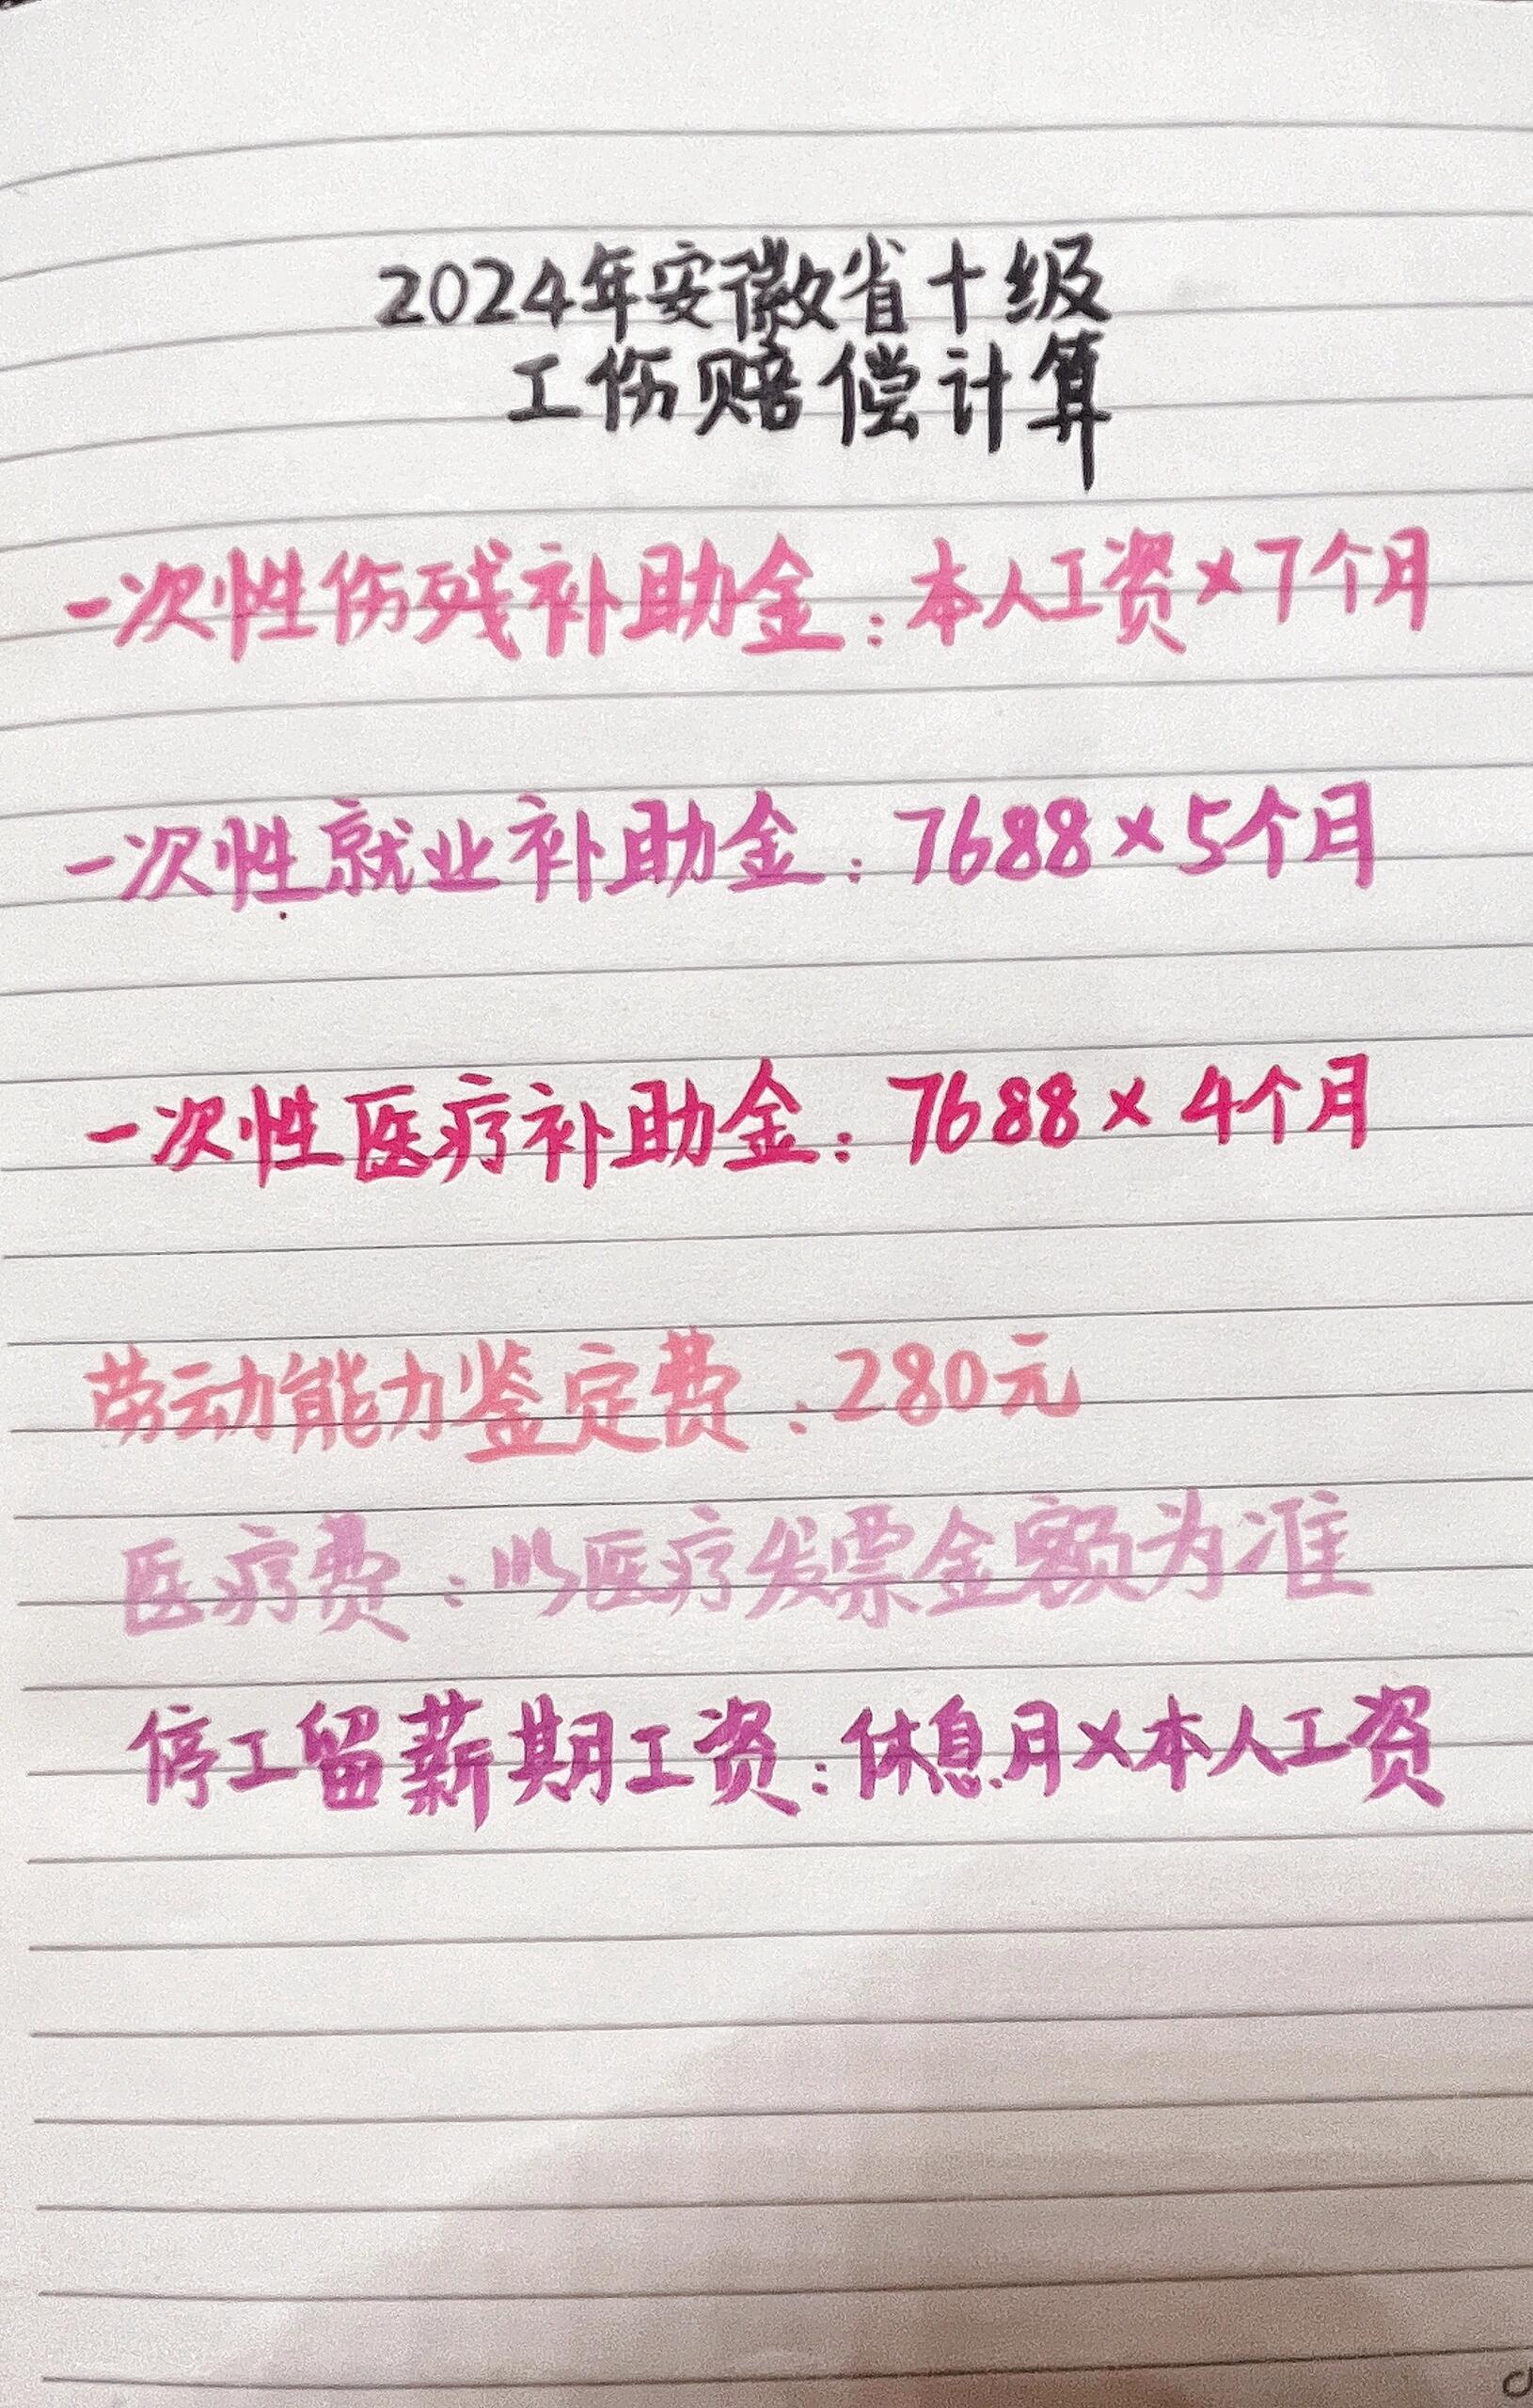 2024年安徽省十级
工伤赔偿计算
一次性伤残补助金：本人工资×7个月
一次性就业补助金：7688×5个月
一次性医疗补助金：7688×4个月
劳动能力鉴定费：280元
医疗费：以医疗发票金额为准
停工留薪期工资：休息月×本人工资